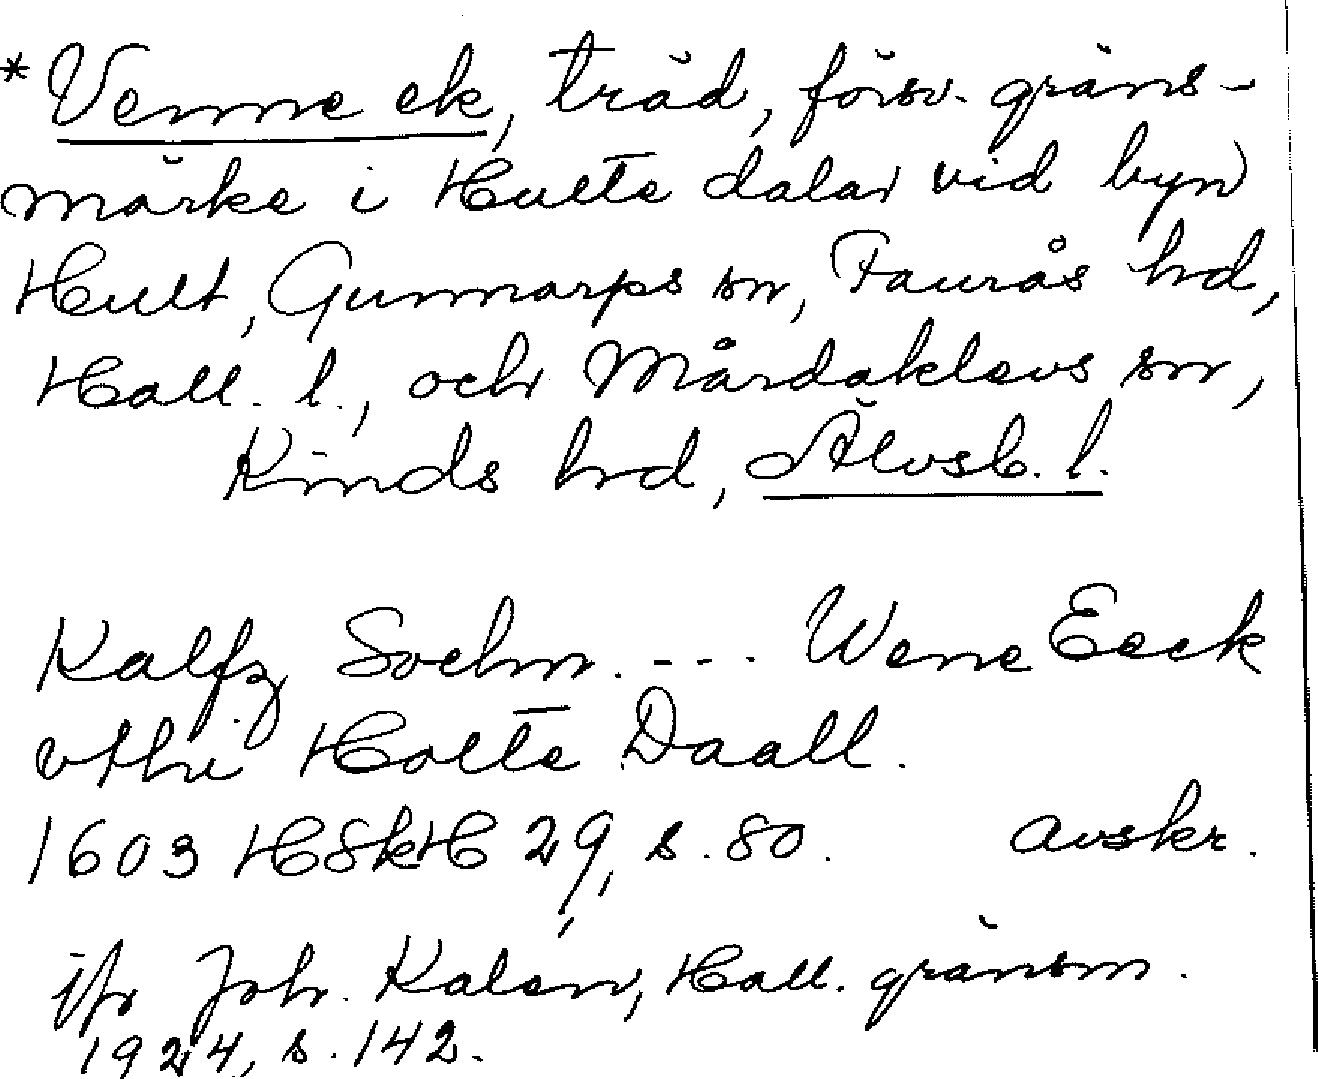 *Venne ek, träd, försv. gräns-
märke i Hulte dalar vid byn
Hult, Gunnarps sn, Faurås hd,
Hall. l., och Mårdaklevs sn,
Kinds hd, Älvsb. l.
Kalfz Soehn. - - - Wene Eeck
vthi Holte Daall.
1603 HSkH 29, s. 80. avskr.
jfr Joh. Kalén, Hall. gränsm.
1924, s. 142.